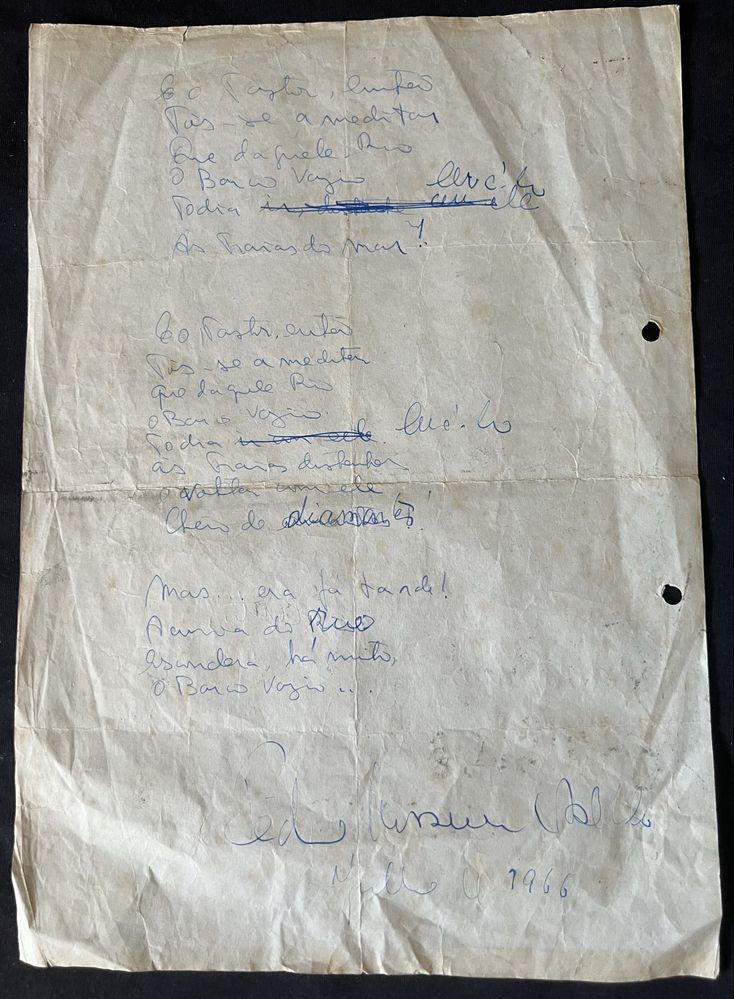 E o Pastor, então
Pôs-se a meditar
Que daquele Rio
O Barco Vazio
Podia levá-lo
Às Praias do mar!
E o Pastor, então
Pôs-se a meditar
que daquele Rio
o Barco Vazio
Podia levá-lo
às Praias distantes
e voltar com ele
Cheio de diamantes!
Mas... era já tarde!
A curva do Rio
escondera, há muito,
O Barco Vazio...
1966